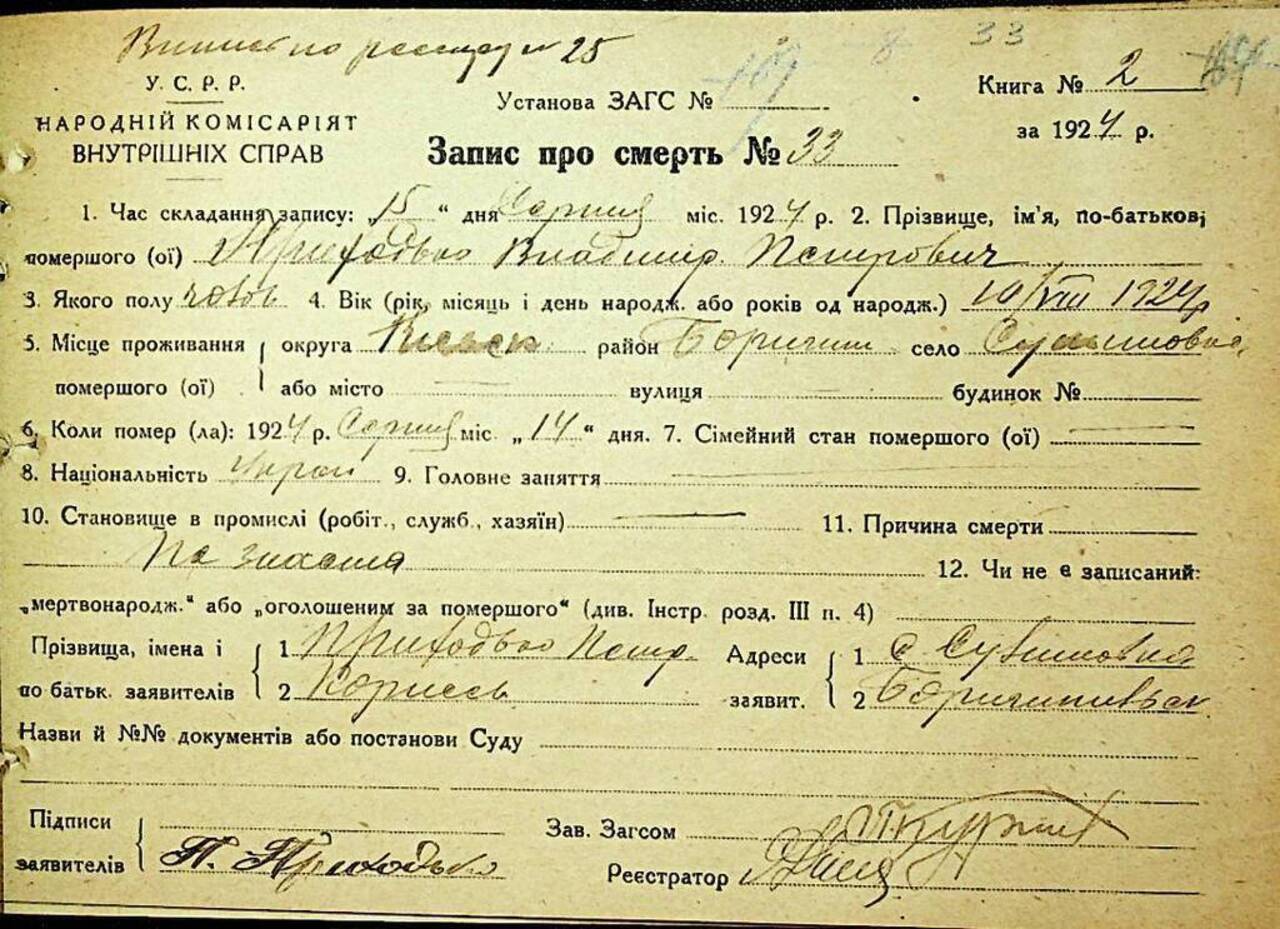 по № 25
33
У. С. Р. Р.
НАРОДНІЙ КОМІСАРІЯТ
ВНУТРІШНІХ СПРАВ
Установа ЗАГС №
Книга № 2
за 1924 р.
Запис про смерть № 33
1. Час складання запису: „15“ дня Серпня міс. 1924 р. 2. Прізвище, ім'я, по-батькові
помершого (ої) Приходько Владимир Петрович
3. Якого полу чолов 4. Вік (рік, місяць і день народж. або років од народж.) 10/VIII 1924 р
5. Місце проживання округа Київськ район село
помершого (ої) або місто вулиця будинок №
6. Коли помер (ла): 1924 р. Серпня міс. „14“ дня. 7. Сімейний стан помершого (ої)
8. Національність Украй 9. Головне заняття
10. Становище в промислі (робіт., служб., хазяїн) 11. Причина смерти
12. Чи не є записаний:
„мертвонародж.“ або „оголошеним за помершого“ (див. Інстр. розд. III п. 4)
Прізвища, імена і 1 Приходько Петр Адреси 1 с
по батьк. заявителів 2 заявит. 2
Назви й №№ документів або постанови Суду
Підписи
заявителів П. Приходько
Зав. Загсом
Реєстратор